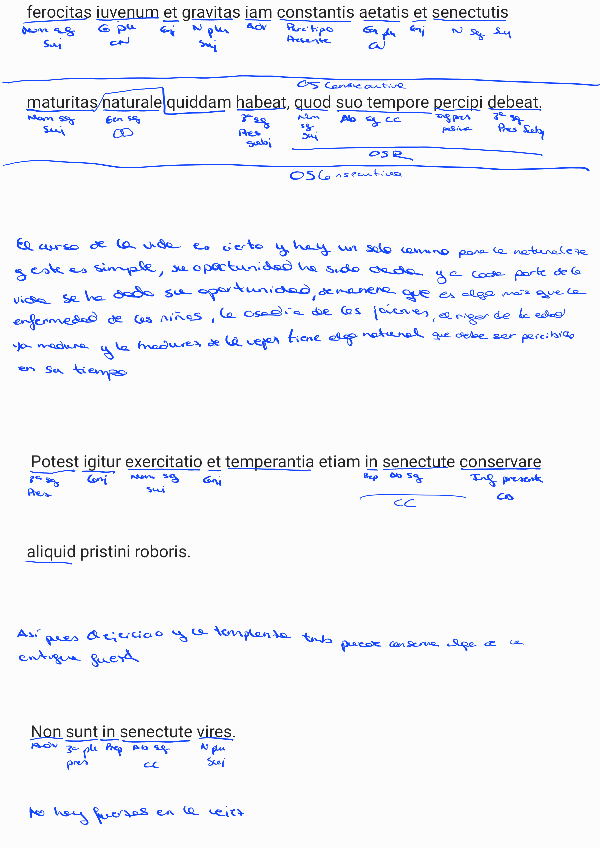 ferocitas iuvenum et gravitas iam constantis aetatis et senectutis
Nom sg G plu Conj N plu Adv Participio G plu Conj N sg
Suj CN Suj Presente CN
OS Consecutiva
maturitas naturale quiddam habeat, quod suo tempore percipi debeat.
Nom sg Gen sg 3ª sg Nom sg Ab sg CC Inf pres 3ª sg
Suj CD Pres Subj Suj pasiva Pres Subj
OSR
OS Consecutiva
El curso de la vida es cierto y hay un solo camino para la naturaleza
y este es simple, su oportunidad ha sido dada y a cada parte de la
vida se ha dado su oportunidad, de manera que es algo más que la
enfermedad de los niños, la osadía de los jóvenes, el rigor de la edad
ya madura y la madures de la vejes tiene algo natural que debe ser percibido
en su tiempo
Potest igitur exercitatio et temperantia etiam in senectute conservare
3ª sg Conj Nom sg Conj Prep Ab sg Inf presente
Pres Suj CC CD
aliquid pristini roboris.
Así pues el ejercicio y la templanza puede conserva algo de la
antigua
Non sunt in senectute vires.
Adv 3ª plu Prep Ab sg N plu
pres CC Suj
No hay fuerzas en la vejez